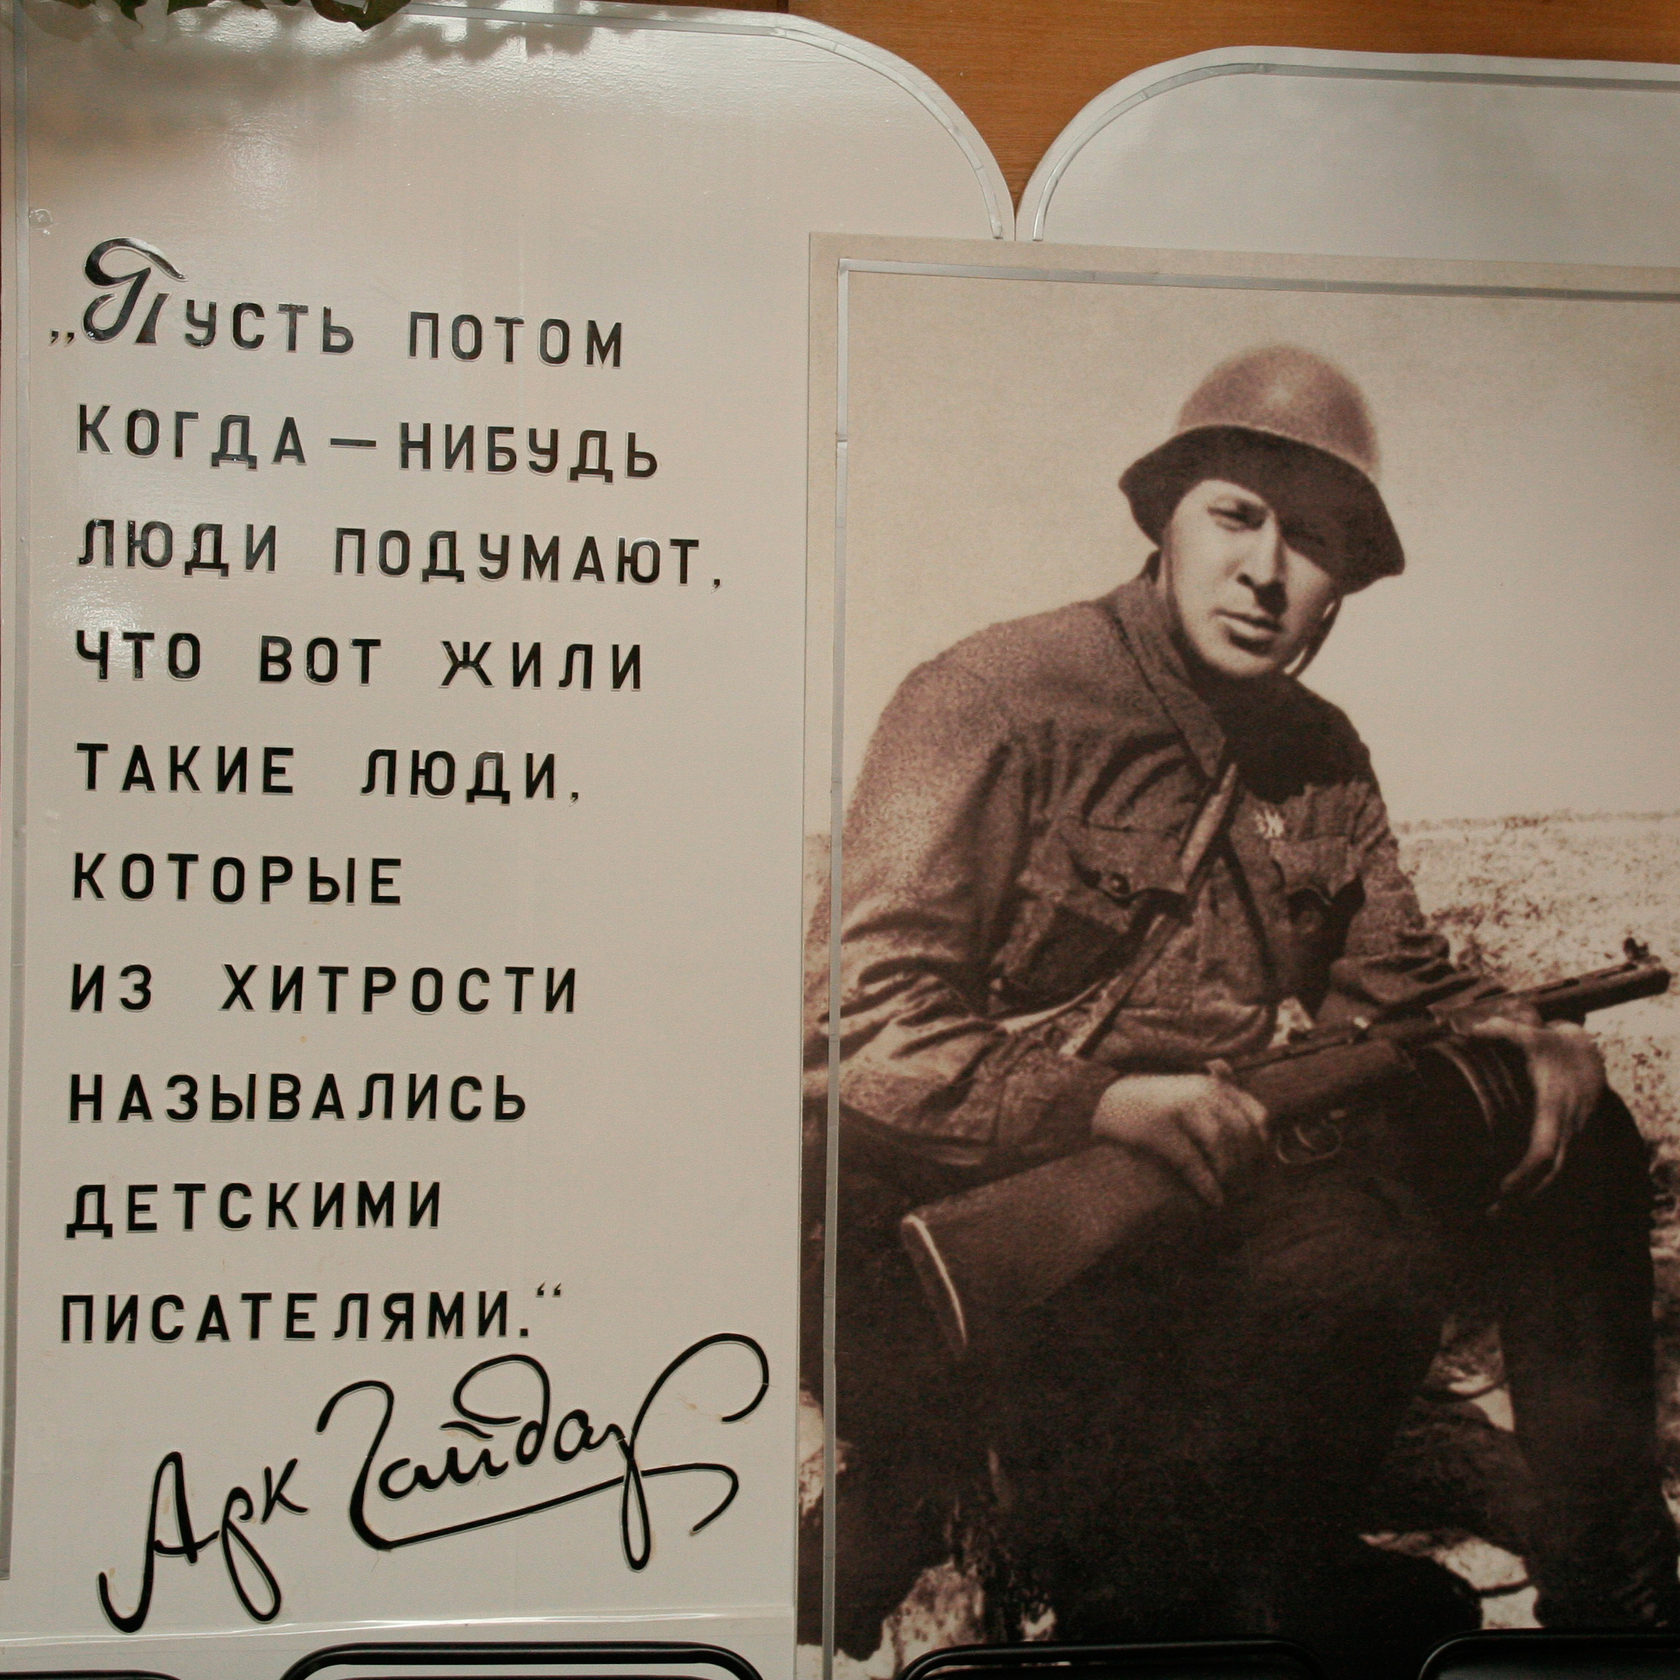 „Пусть потом
когда—нибудь
люди подумают,
что вот жили
такие люди,
которые
из хитрости
назывались
детскими
писателями.“
Арк Гайдар